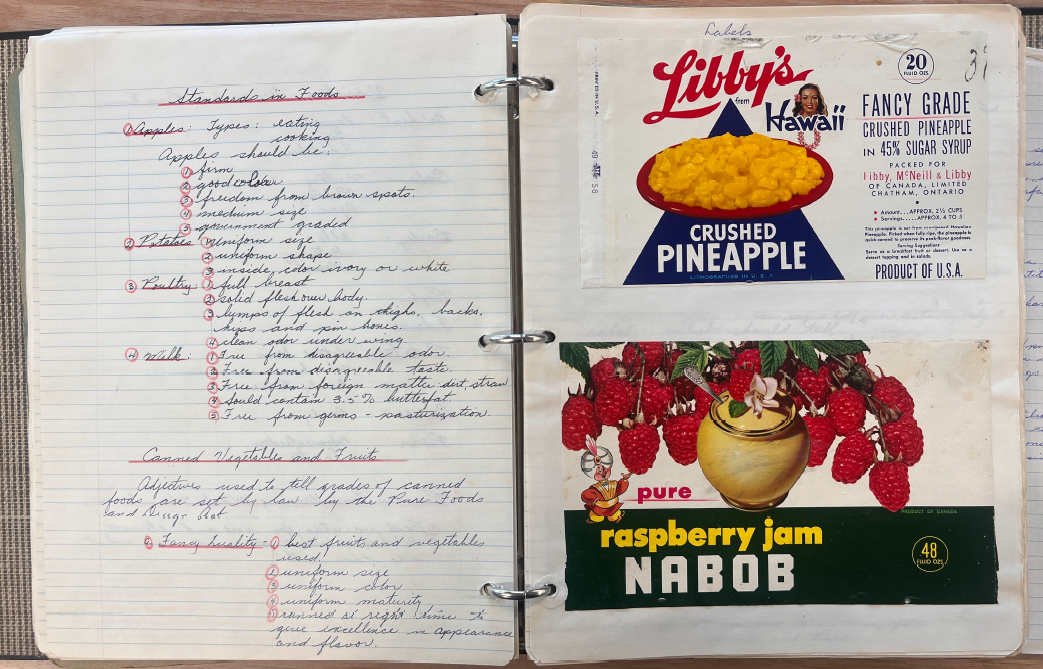 Standards in Foods
① Apples: Types: eating
cooking
Apples should be:
① firm
② good color
③ freedom from brown spots.
④ medium size
⑤ government graded
② Potatoes ① uniform size
② uniform shape
③ inside color ivory or white
③ Poultry: ① full breast
② solid flesh over body.
③ lumps of flesh on thighs, backs,
hips and pin bones.
④ clean odor under wing.
④ Milk: ① Free from disagreeable odor.
② Free from disagreeable taste.
③ Free from foreign matter: dirt, straw
④ Sould contain 3.5% butterfat.
⑤ Free from germs - pasturization.
Canned Vegetables and Fruits
Adjectives used to tell grades of canned
foods are set by law by the Pure Foods
and
① Fancy Quality - ① best fruits and vegetables
used.
② uniform size
③ uniform color
④ uniform maturity
⑤ canned at right time to
give excellence in appearance
and flavor.
Labels
31
Libby's
from
Hawaii
CRUSHED
PINEAPPLE
LITHOGRAPHED IN U.S.A.
20
FLUID OZS.
FANCY GRADE
CRUSHED PINEAPPLE
IN 45% SUGAR SYRUP
PACKED FOR
Libby, McNeill & Libby
OF CANADA, LIMITED
CHATHAM, ONTARIO
Amount....APPROX. 2½ CUPS
Servings......APPROX. 4 TO 5
This pineapple is cut from Hawaiian
Pineapple. Picked when fully ripe, the pineapple is
quick-canned to preserve its peak-flavor goodness.
Serving Suggestions
Serve as a breakfast fruit or dessert. Use as a
dessert topping and in salads.
PRODUCT OF U.S.A.
pure
PRODUCT OF CANADA
raspberry jam
NABOB
48
FLUID OZS.